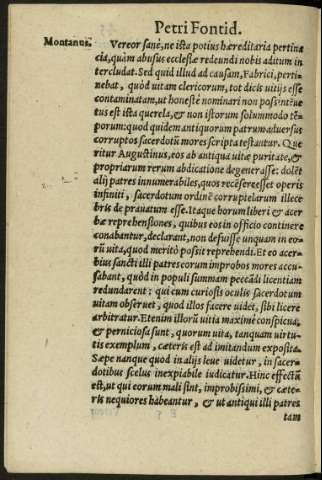 Petri Fontid.
Montanus.
Vereor sanè, ne ista potius hæreditaria pertina
cia, quàm abusus ecclesiæ redeundi nobis aditum in
tercludat. Sed quid illud ad causam, Fabrici, perti-
nebat, quòd uitam clericorum, tot dicis uitijs esse
contaminatam, ut honestè nominari non possent? ue
tus est ista querela, & non istorum solummodo tẽ
porum: quod quidem antiquorum patrum aduersus
corruptos sacerdotũ mores scripta testantur. Que
ritur Augustinus, eos ab antiqua uitæ puritate, &
propriarum rerum abdicatione degenerasse: dolẽt
alij patres innumerabiles, quos recẽsere esset operis
infiniti, sacerdotum ordinẽ corruptelarum illece
bris deprauatum esse. Itaque horum liberi & acer
bæ reprehensiones, quibus eos in officio continere
conabantur, declarant, non defuisse unquam in eo-
rũ uita, quod meritò possit reprehendi. Et eo acer-
bius sancti illi patres eorum improbos mores accu-
sabant, quòd in populi summam peccãdi licentiam
redundarent: qui cum curiosis oculis sacerdotum
uitam obseruet, quod illos facere uidet, sibi licere
arbitratur. Etenim illorũ uitia maximè conspicua,
& perniciosa sunt, quorum uita, tanquam uirtu-
tis exemplum, cæteris est ad imitandum exposita.
Sæpe nanque quod in alijs leue uidetur, in sacer-
dotibus scelus inexpiabile iudicatur. Hinc effectũ
est, ut qui eorum mali sint, improbissimi, & cæte-
ris nequiores habeantur, & ut antiqui illi patres
tam